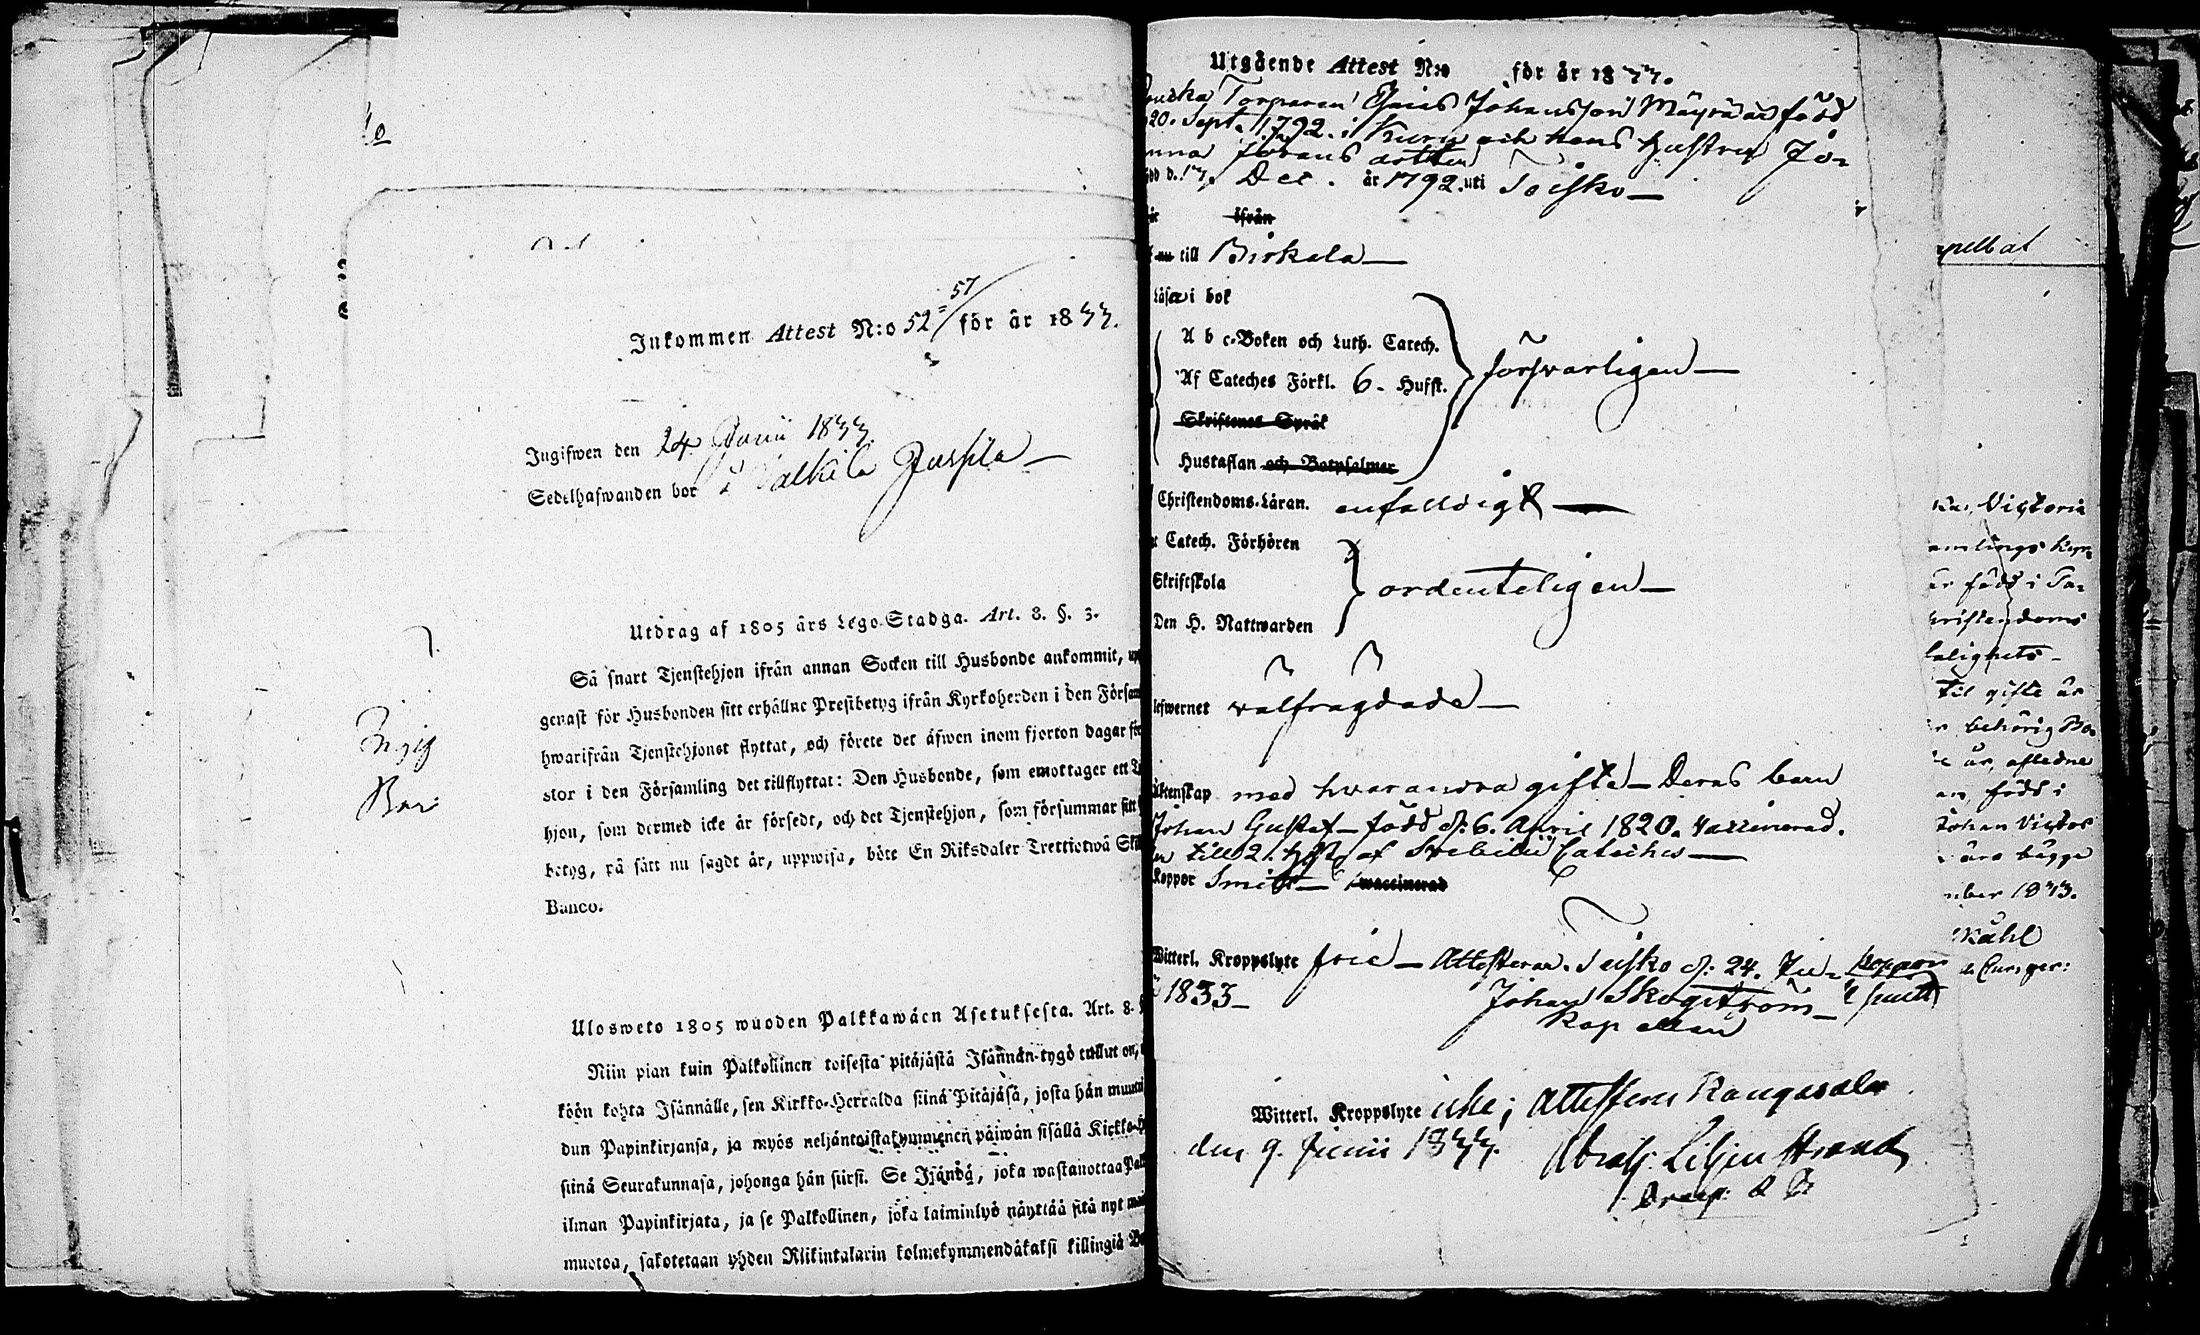 Inkommen Attest N:o 52 = 57 för år 1833.
Ingifwen den 24 Junii 1833.
Sedelhafwanden bor i Palkila Jussila
Utdrag af 1805 års Lego-Stadga. Art. 8. §. 3.
Så snart Tjenstehjon ifrån annan Socken till Husbonde ankommit,
genast för Husbonden sitt erhållne Prestbetyg ifrån Kyrkoherden i den Försam
hwarifrån Tjenstehjonet flyttat, och förete det äfwen inom fjorton dagar för
stor i den Församling det tillflyttat: Den Husbonde, som emottager ett T
hjon, som dermed icke är försedt, och det Tjenstehjon, som försummar sitt
betyg, på sätt nu sagdt är, uppwisa, böte En Riksdaler Trettiotwå Skil
Banco.
Ulosweto 1805 wuoden Palkkawäen Asetuksesta. Art. 8. §
Niin pian kuin Palkollinen toisesta pitäjästä Isännän-tygö tullut on,
köön kohta Isännälle, sen Kirkko-Herralda siinä Pitäjäsä, josta hän muutta
dun Papinkirjansa, ja myös neljäntoistakymmenen päiwän sisällä Kirkko-H
siinä Seurakunnasa, johonga hän siirsi. Se Isändä, joka wastanottaa Pal
ilman Papinkirjata, ja se Palkollinen, joka laiminlyö näyttää sitä nyt
muotoa, sakotetaan yhden Riikintalarin kolmekymmendäkaksi killingiä B
Utgående Attest N:o för år 1833.
Torparen Johansson Mäyrä är född
20. Sept. 1792. i Kuru och Hans Hustru Jo-
dd d. 13. Dec. år 1792. uti Teisko
ifrån
nu till Birkala
Läser i bok
A b c-Boken och Luth. Catech.
Af Cateches Förkl. 6. Hufst. försvarligen
Skriftenes Språk
Hustaflan och Botpsalmer
Christendoms-Läran. enfalldigt
Catech. Förhören
Skriftskola ordenteligen
Den H. Nattwarden
lefwernet välfrägdade
Äktenskap med hvarandra gifte - Deras barn
Johan Gustaf - född d: 6. April 1820. Vaccinerad.
till 2. hfst. af Svebilii Cateches
Koppor Smitt waccinerad
Witterl. Kroppslyte frie - Attesterar. Teisko d: 24. Ju- koppor
1833 - Johan Skogström - smitt
Kapellan
Witterl. Kroppslyte icke; Attesterar Kangasala
den 9. Junii 1833. Abrah: Liljenstrand
yellat
Victoria
amlings Kyr-
är född i Ta-
hristendoms
salighets-
til gifte är
behörig Bo-
är, afledne
född i
Johan Victor
äro bägge
mber 1833.